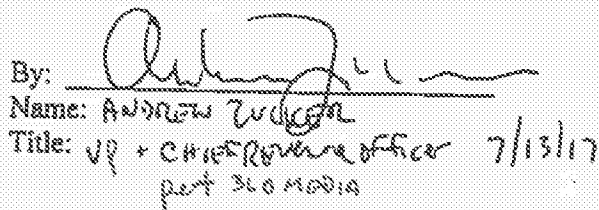 By:
Name: ANDREW ZUCKER
Title: VP + CHIEF Revenue officer 7/13/17
360 MEDIA